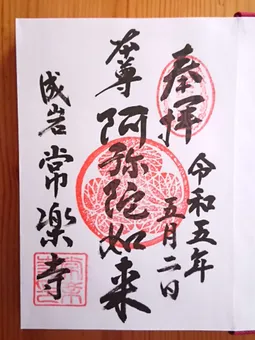 奉拝
令和五年
五月二日
本尊
阿弥陀如来
成岩
常楽寺